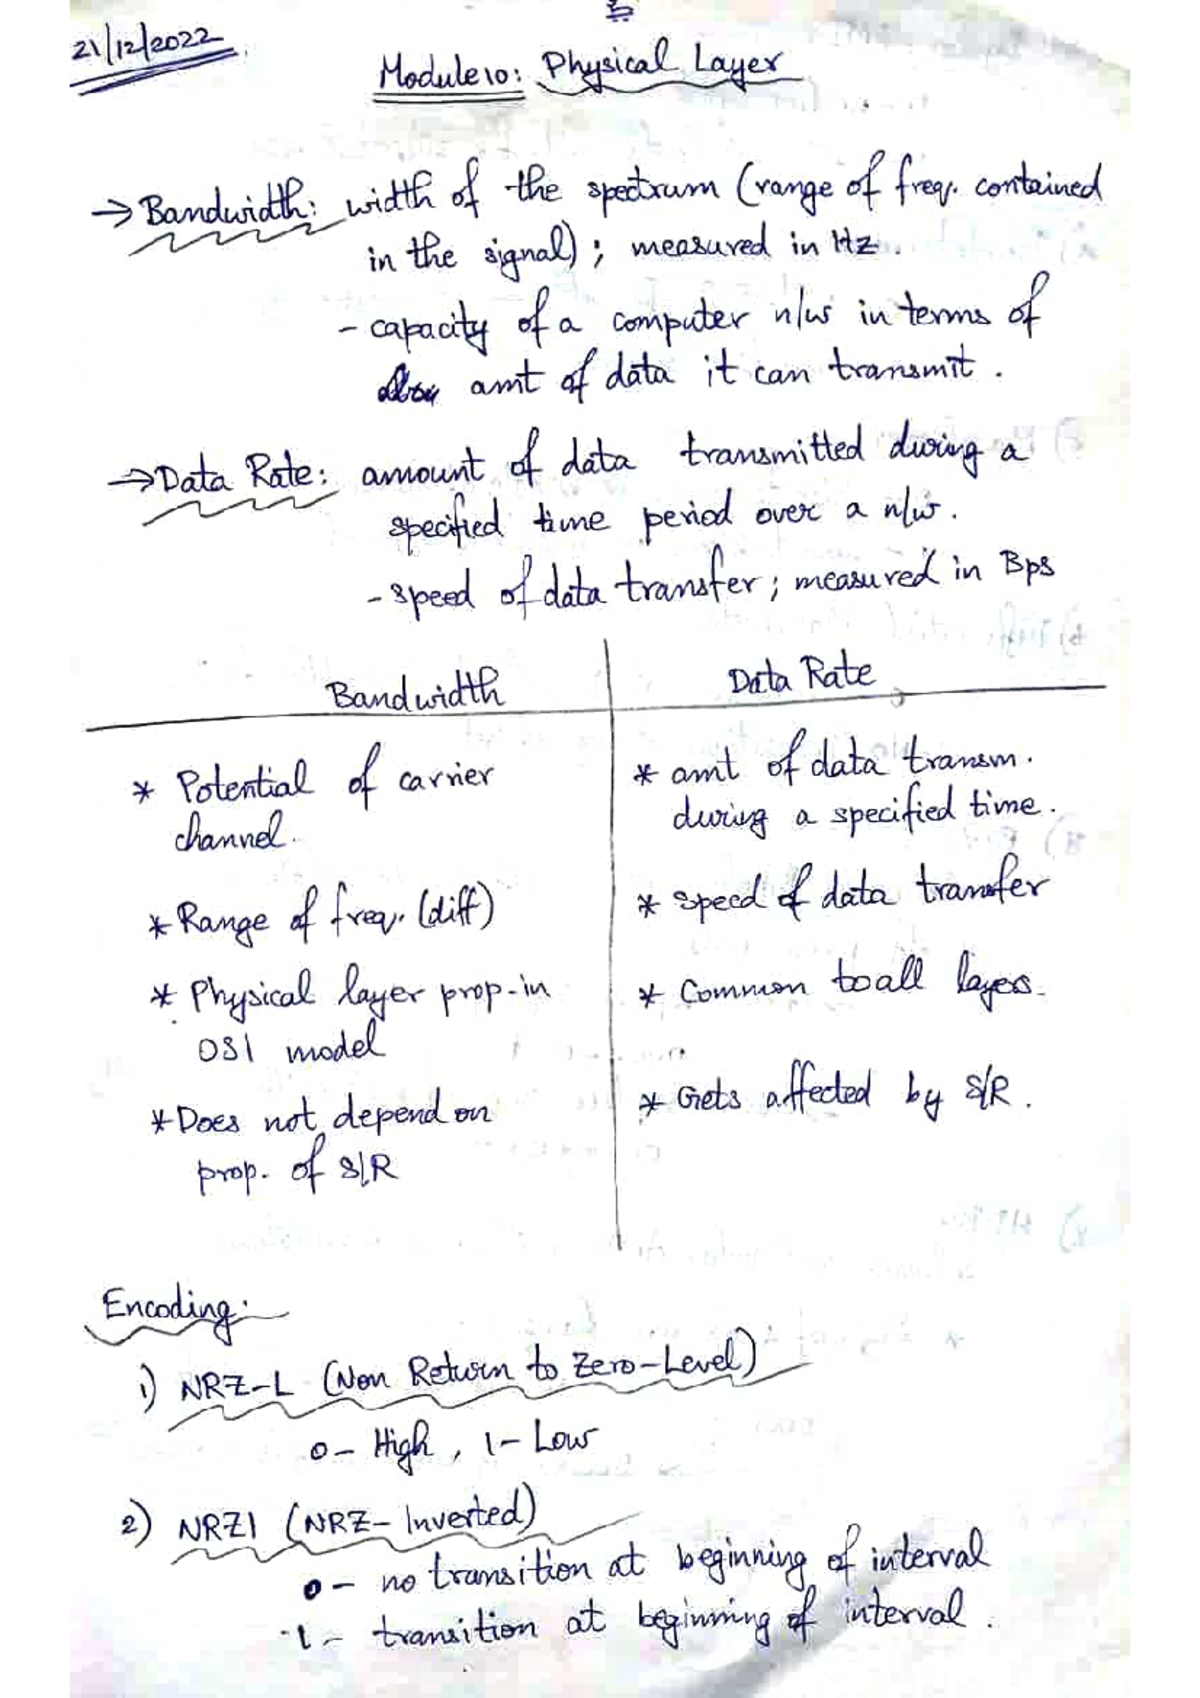 21/12/2022
Module 10: Physical Layer
→ Bandwidth: width of the spectrum (range of freq. contained
in the signal); measured in Hz.
- capacity of a computer n/w in terms of
amt of data it can transmit.
→ Data Rate: amount of data transmitted during a
specified time period over a n/w.
- speed of data transfer; measured in Bps
Bandwidth
* Potential of carrier
channel.
* Range of freq. (diff)
* Physical layer prop. in
OSI model
* Does not depend on
prop. of S/R
Data Rate
* amt of data transm.
during a specified time.
* speed of data transfer
* Common to all layers.
* Gets affected by S/R.
Encoding:
1) NRZ-L (Non Return to Zero-Level)
0- High, 1- Low
2) NRZI (NRZ- Inverted)
0- no transition at beginning of interval
1- transition at beginning of interval.